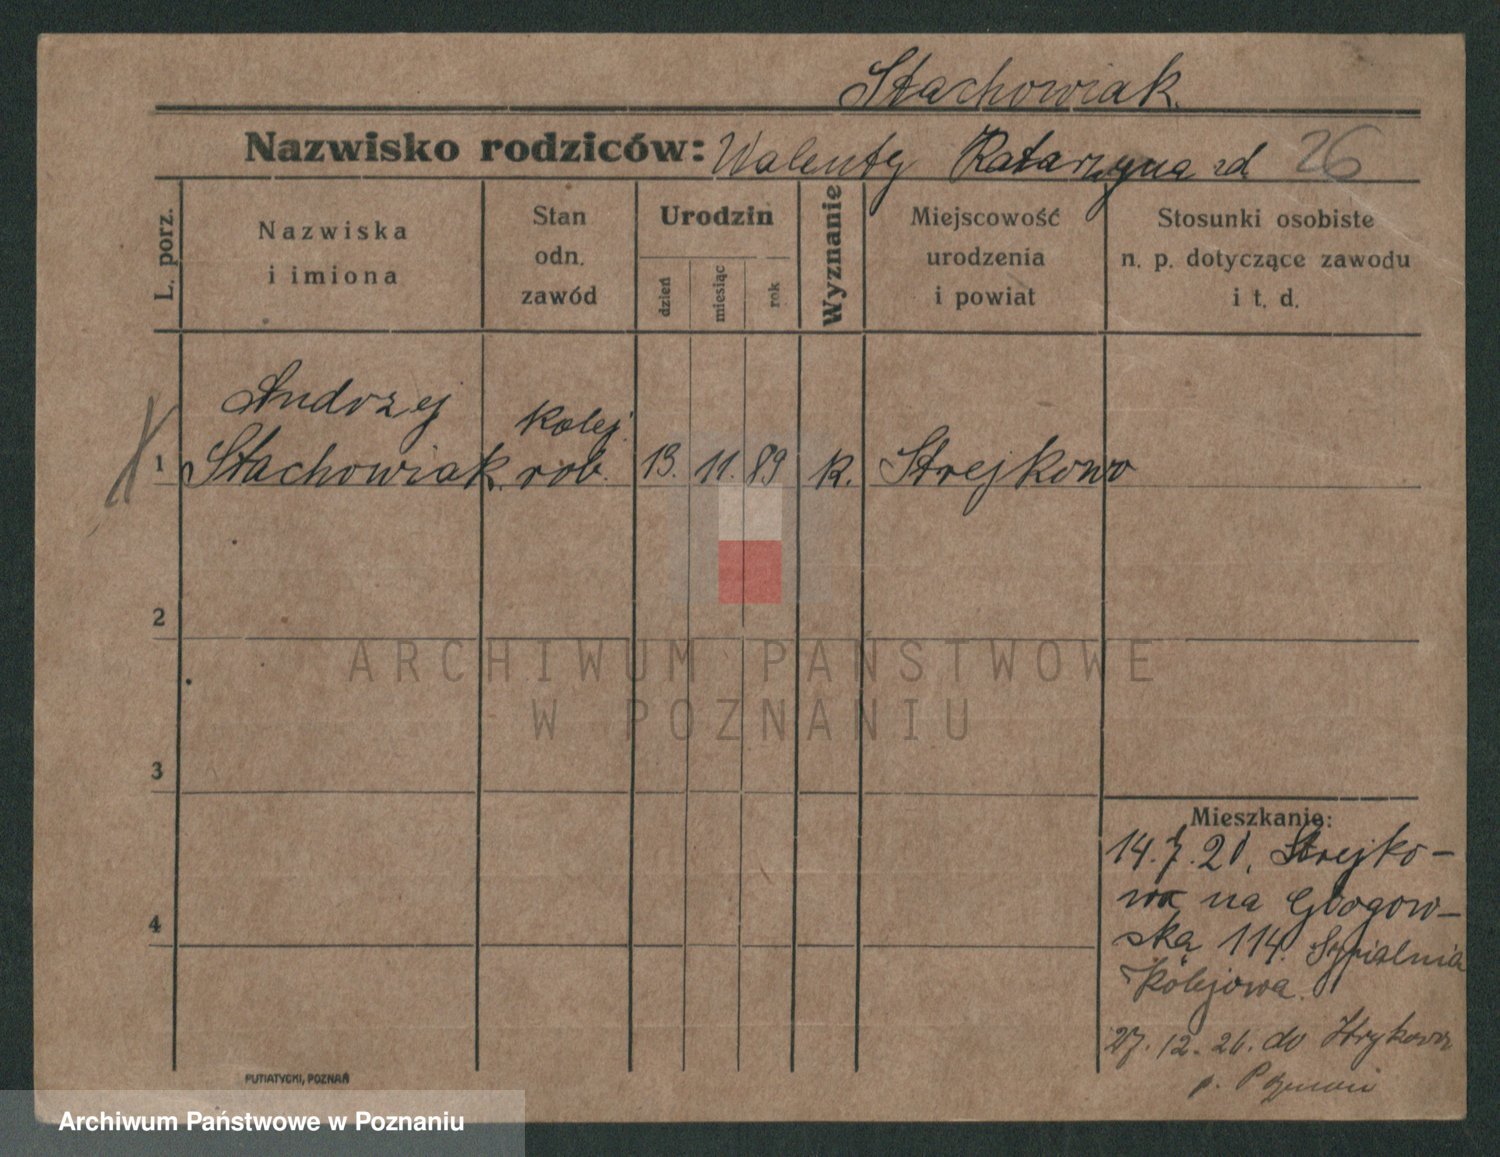 Stachowiak
Nazwisko rodziców: Walenty Katarzyna zd 26
L. porz.
Nazwiska
i imiona
Stan
odn.
zawód
Urodzin
dzień
miesiąc
rok
Wyznanie
Miejscowość
urodzenia
i powiat
Stosunki osobiste
n. p. dotyczące zawodu
i t. d.
Andrzej kolej.
1 Stachowiak rob. 13. 11. 89 k. Strejkowo
2
3
4
Mieszkanie:
14.7.21. Strejko-
wa na Głogow-
ską 114. Sypialnia
Kolejowa.
27.12.26. do Strykowa
p. Poznań
PUTIATYCKI, POZNAŃ
ARCHIWUM PAŃSTWOWE
W POZNANIU
Archiwum Państwowe w Poznaniu